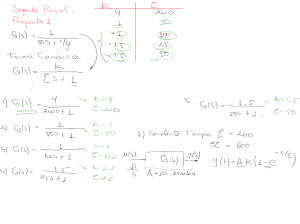 Segundo Parcial.
Pregunta 1
G(s) = 1
50s + 1/4
Forma Canónica
G(s) = K
τs + 1
K τ
4 200
1 50
1 100
1.5 25
1.5 50
1) G(s) = 4
200s + 1
K = 4
τ = 200
2) G(s) = 1
50s + 1
K = 1
τ = 50
3) G(s) = 1
100s + 1
K = 1
τ = 100
4) G(s) = 1.5
25s + 1
K = 1.5
τ = 25
5. G(s) = 1.5
50s + 1
K = 1.5
τ = 50
2) Constante Tiempo τ = 200
u(s) G(s) y(s)
A
S
A = 10 escalón
y(t) = A K (1 - e^-t/τ)